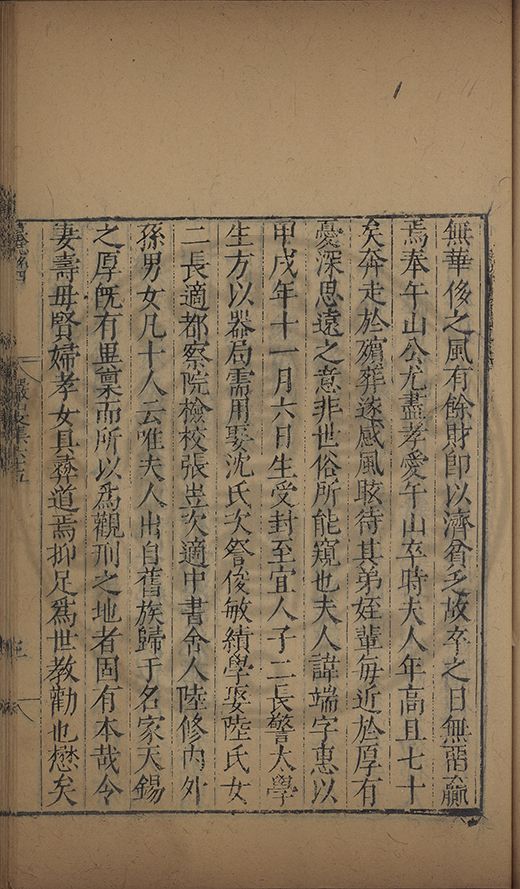 無華侈之風有餘財即以濟貧乏故卒之日無留贏
焉奉午山公尤盡孝愛午山卒時夫人年高且七十
矣奔走於殯葬遂感風眩待其弟姪輩每近於厚有
憂深思遠之意非世俗所能窺也夫人諱端字惠以
甲戌年十一月六日生受封至宜人子二長謷太學
生方以器局需用娶沈氏次詧俊敏績學娶陸氏女
二長適都察院檢校張昱次適中書舍人陸修內外
孫男女凡十人云唯夫人出自舊族歸于名家天錫
之厚旣有異稟而所以爲觀刑之地者固有本哉令
妻壽母賢婦孝女具彞道焉抑足爲世教勸也懋矣